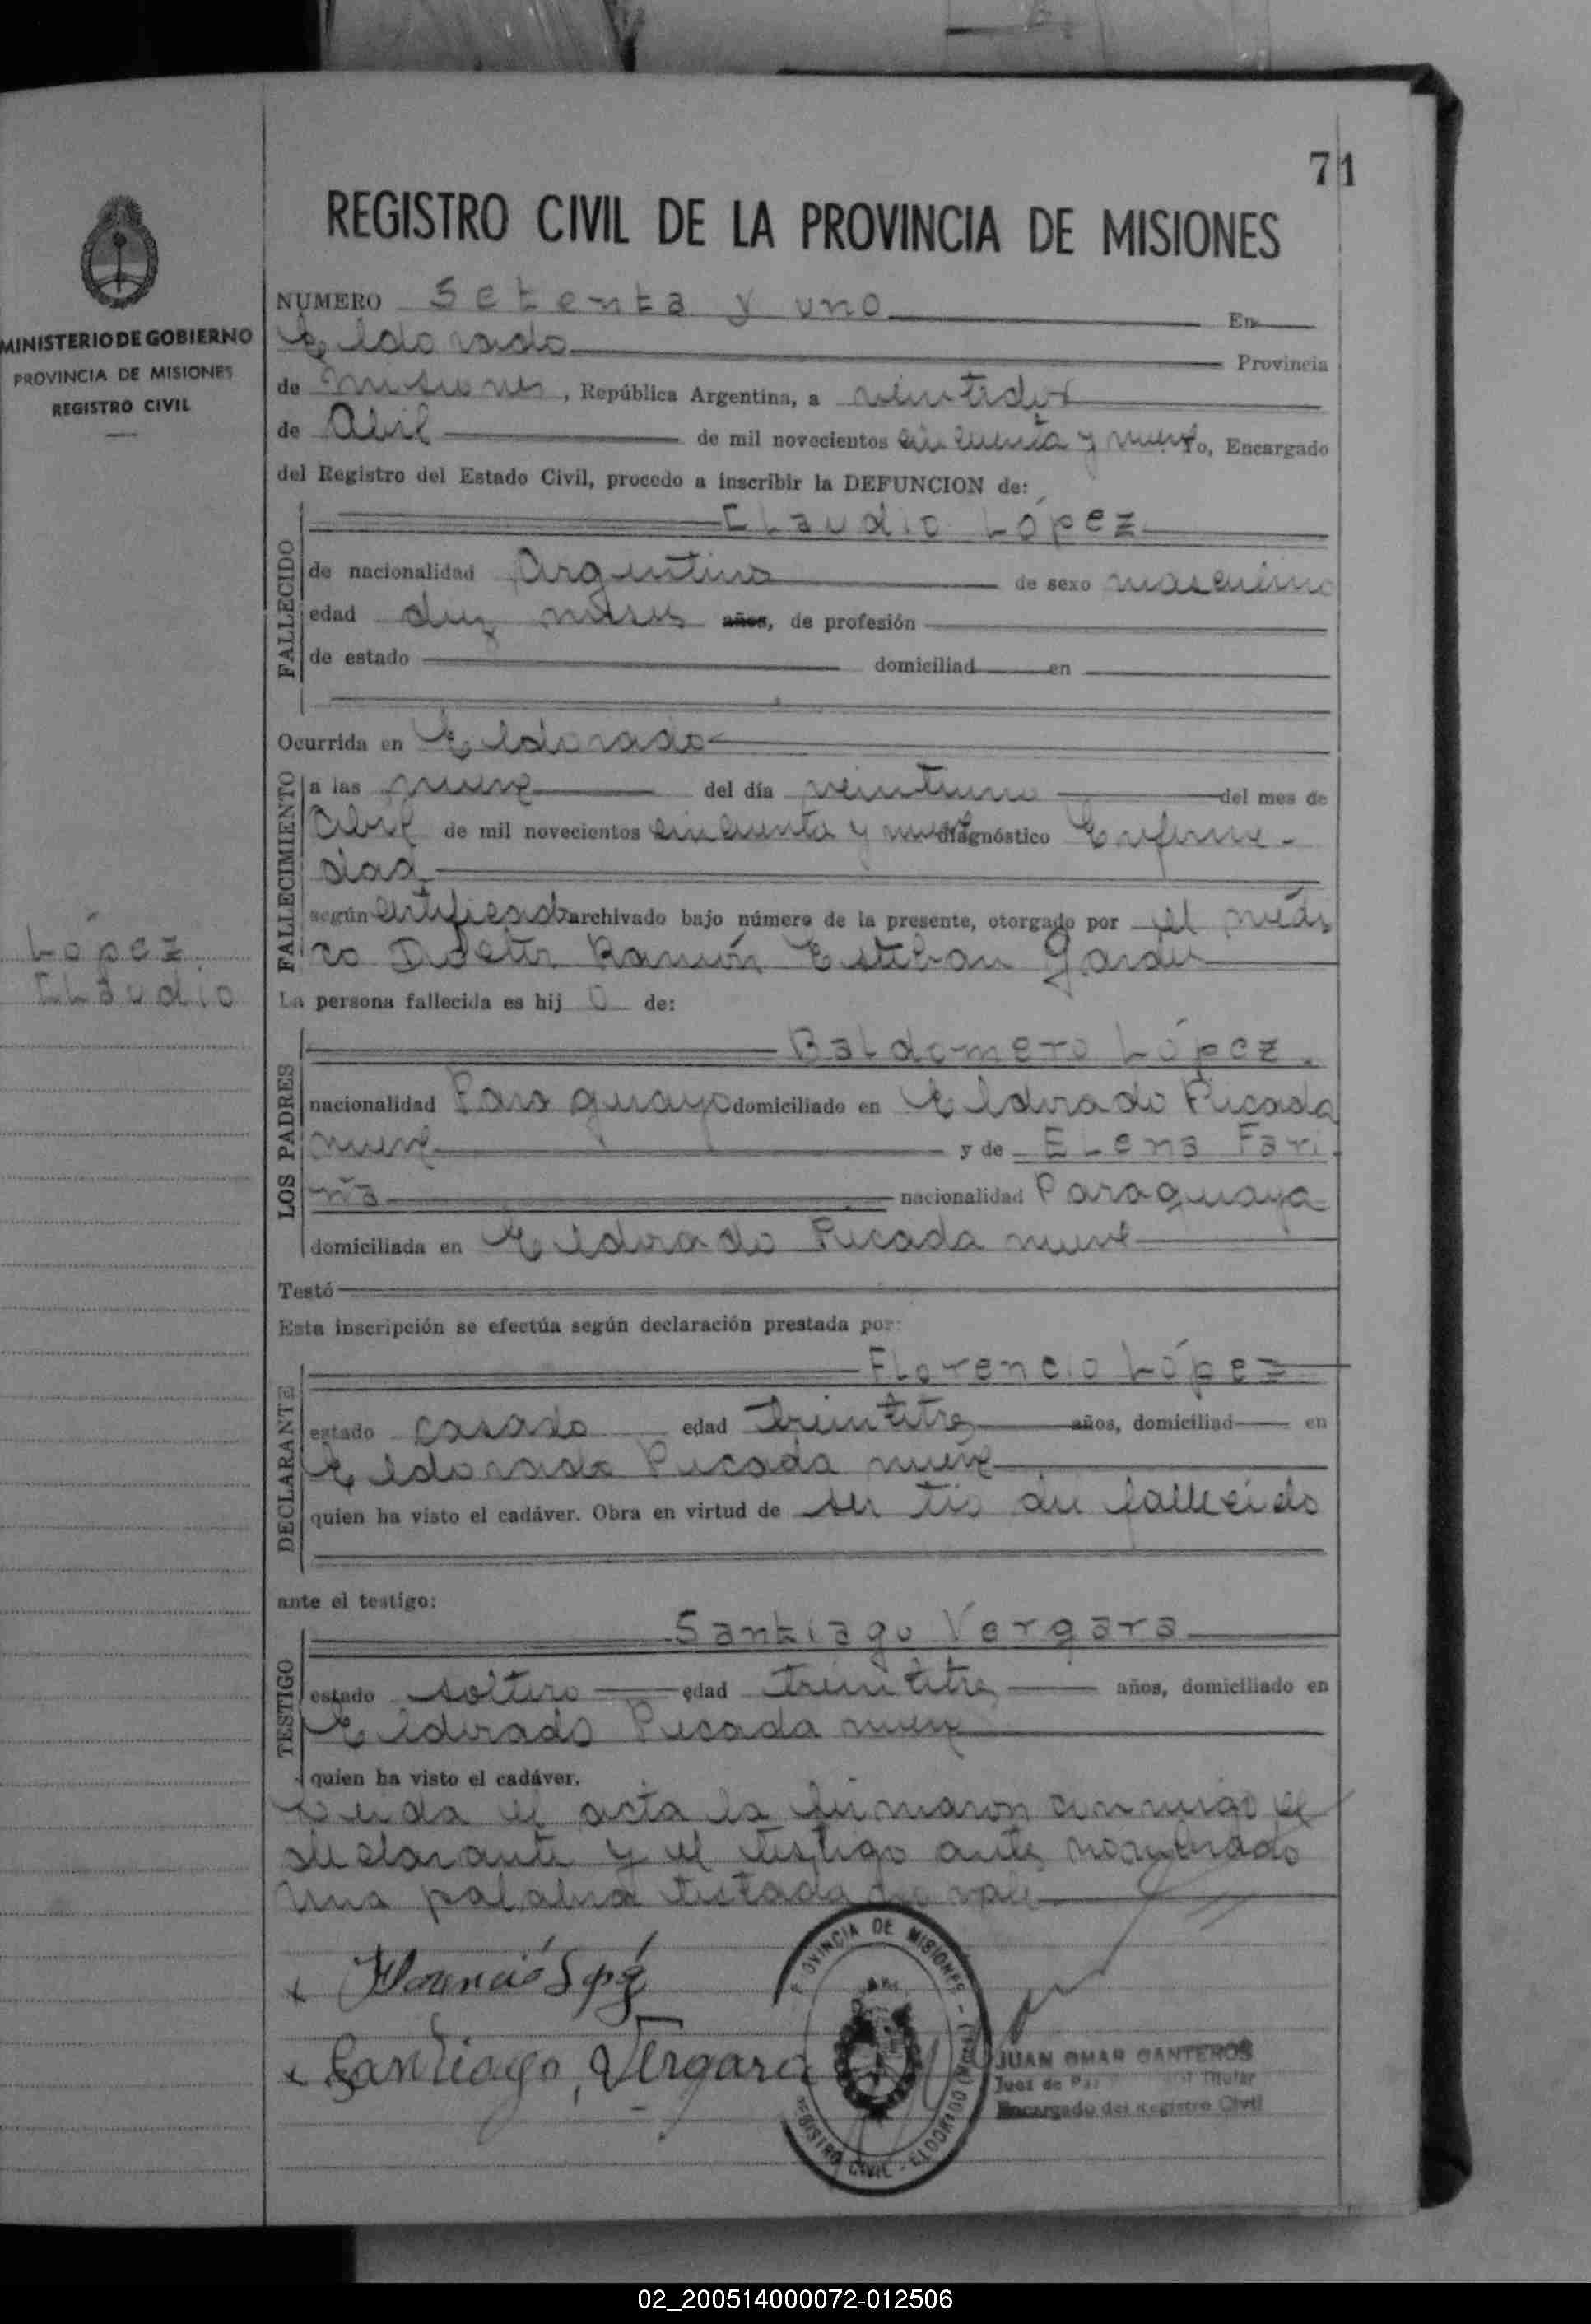 71
REGISTRO CIVIL DE LA PROVINCIA DE MISIONES
MINISTERIO DE GOBIERNO
PROVINCIA DE MISIONES
REGISTRO CIVIL
NUMERO Setenta y uno En
Eldorado Provincia
de Misiones, República Argentina, a veintidos
de Abril de mil novecientos cincuenta y nueve Yo, Encargado
del Registro del Estado Civil, procedo a inscribir la DEFUNCION de:
Claudio López
FALLECIDO
de nacionalidad Argentino de sexo masculino
edad diez meses años, de profesión
de estado domiciliad en
Ocurrida en Eldorado
FALLECIMIENTO
a las nueve del día veintiuno del mes de
Abril de mil novecientos cincuenta y nueve diagnóstico Enferme-
dad
según certificado archivado bajo número de la presente, otorgado por el médi
co Doctor Ramón Esteban
López
Claudio
La persona fallecida es hij o de:
LOS PADRES
Baldomero López.
nacionalidad Paraguayo domiciliado en Eldorado Picada
nueve y de Elena Fari
ña nacionalidad Paraguaya
domiciliada en Eldorado Picada nueve
Testó
Esta inscripción se efectúa según declaración prestada por:
DECLARANTE
Florencio López
estado casado edad treintitres años, domiciliad en
Eldorado Picada nueve
quien ha visto el cadáver. Obra en virtud de ser tio del fallecido
ante el testigo:
TESTIGO
Santiago Vergara
estado soltero edad treintitres años, domiciliado en
Eldorado Picada nueve
quien ha visto el cadáver.
Leida el acta la firmaron conmigo el
declarante y el testigo antes nombrado
Una palabra testada no vale
Florencio López
Santiago Vergara
PROVINCIA DE MISIONES
REGISTRO CIVIL - ELDORADO (Mnes.)
JUAN OMAR CANTEROS
Juez de Paz Titular
Encargado del Registro Civil
02_200514000072-012506